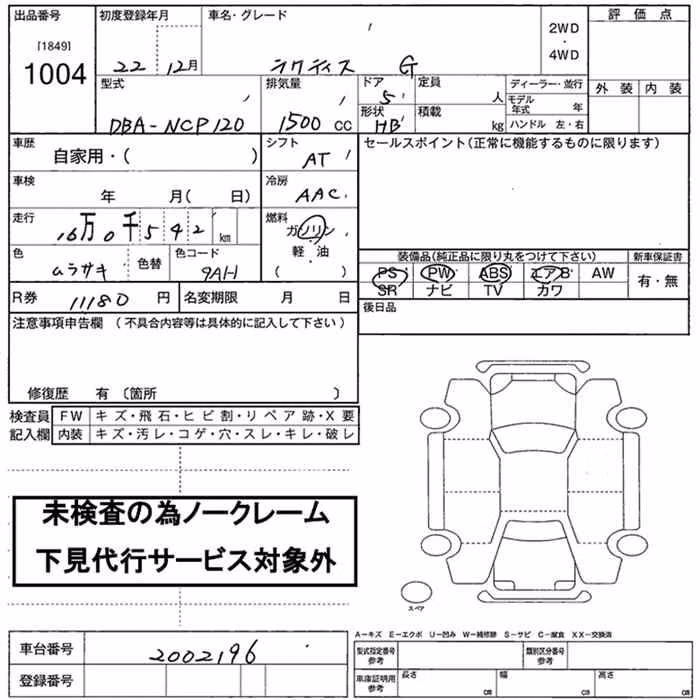 出品番号 初度登録年月 車名・グレード 評価点
[1849] 1004 22年 12月 ラクティス G 2WD ・ 4WD
型式 排気量 ドア 定員 ディーラー・並行 外装 内装
DBA-NCP120 1500 cc 5 人 モデル年式 年
形状 HB 積載 kg ハンドル 左・右
車歴 シフト セールスポイント(正常に機能するものに限ります)
自家用・( ) AT
車検 年 月( 日) 冷房 AAC
走行 16万0千542 km 燃料 ガソリン 軽・油 ( )
色 ムラサキ 色替 色コード 9AH
装備品(純正品に限り丸をつけて下さい) 新車保証書
PS PW ABS エアB AW 有・無
SR ナビ TV カワ
R券 11180 円 名変期限 月 日 後日品
注意事項申告欄 (不具合内容等は具体的に記入して下さい)
修復歴 有 〔箇所 〕
検査員 FW キズ・飛石・ヒビ割・リペア跡・X要
記入欄 内装 キズ・汚レ・コゲ・穴・スレ・キレ・破レ
未検査の為ノークレーム
下見代行サービス対象外
スペア
A-キズ E-エクボ U-凹み W-補修跡 S-サビ C-腐食 XX-交換済
車台番号 2002196 型式指定番号 参考 類別区分番号 参考
登録番号 車庫証明用 参考 長さ cm 幅 cm 高さ cm